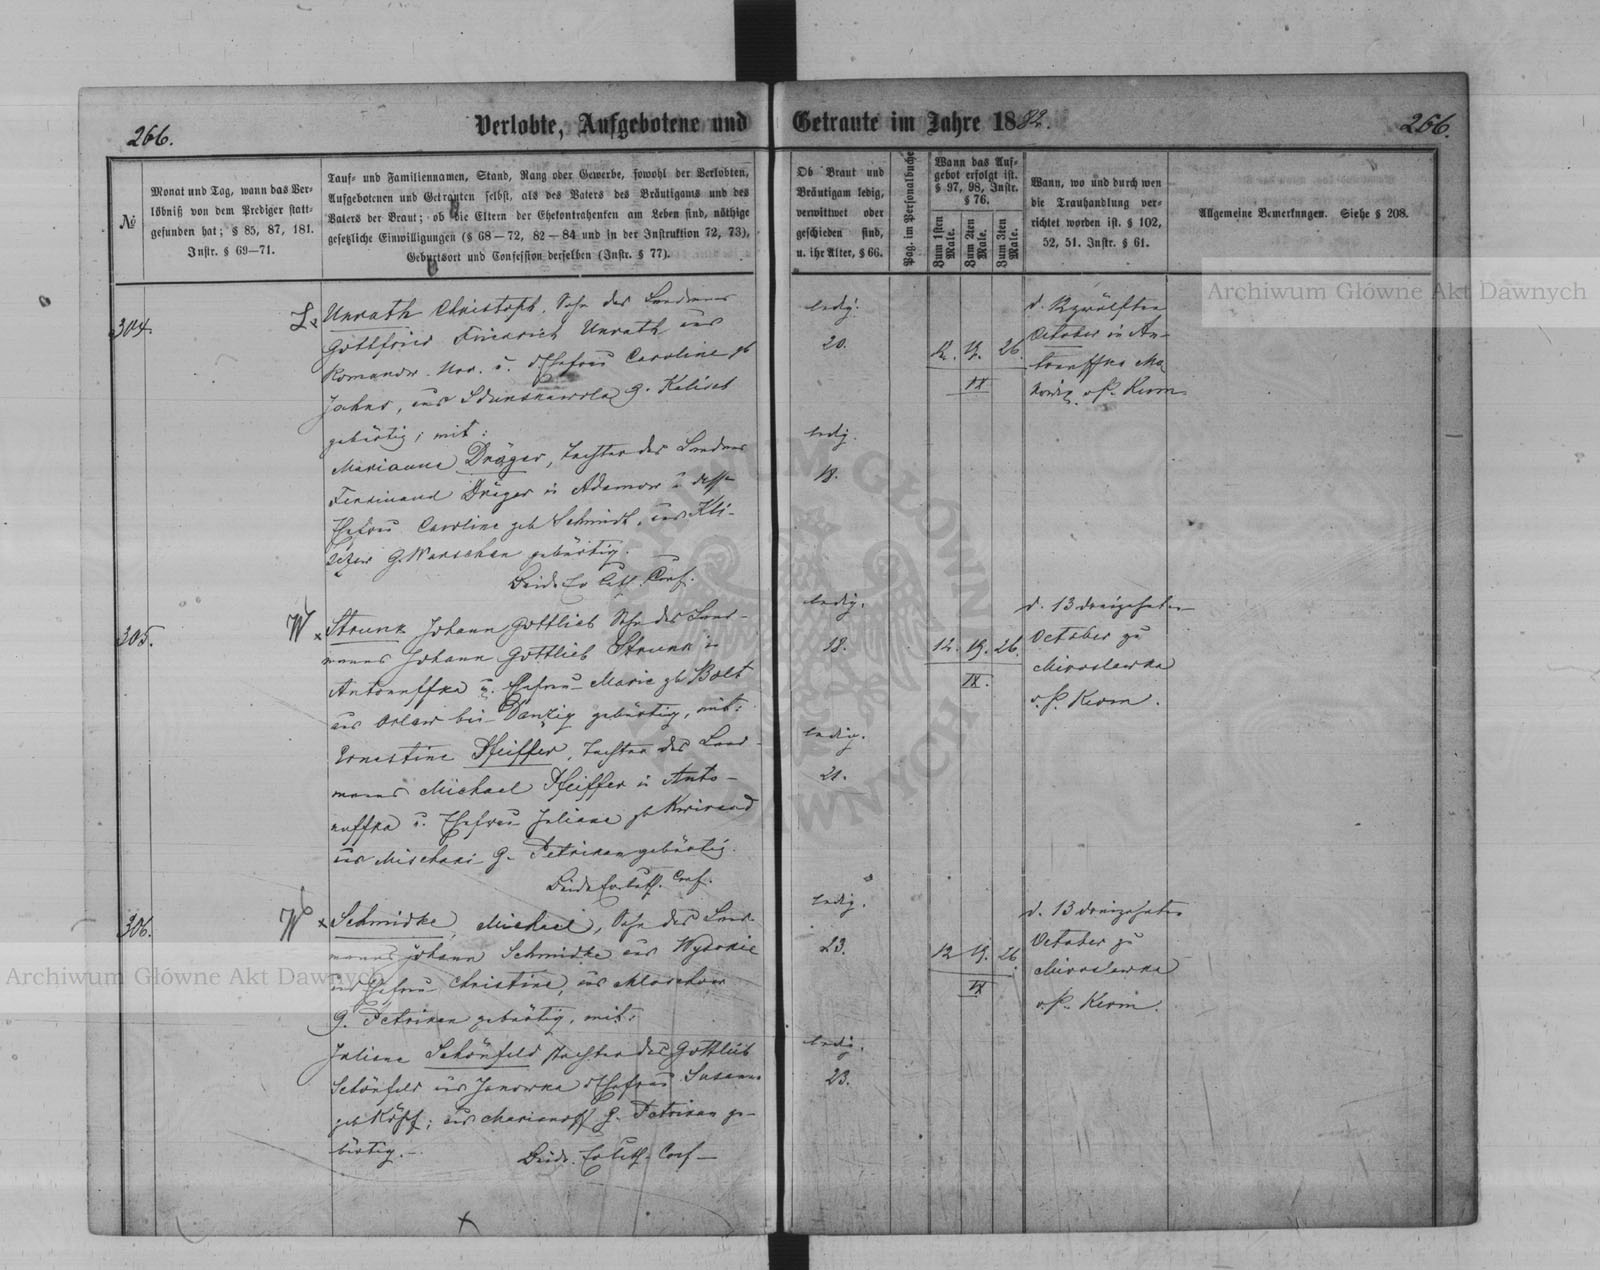 266.
Verlobte, Aufgebotene und Getraute im Jahre 1882.
266.
№
Monat und Tag, wann das Ver-
löbniß von dem Prediger statt-
gefunden hat; § 85, 87, 181.
Instr. § 69—71.
Tauf- und Familiennamen, Stand, Rang oder Gewerbe, sowohl der Verlobten,
Aufgebotenen und Getrauten selbst, als des Vaters des Bräutigams und des
Vaters der Braut; ob die Eltern der Ehekontrahenten am Leben sind, nöthige
gesetzliche Einwilligungen (§ 68—72, 82—84 und in der Instruktion 72, 73),
Geburtsort und Confession derselben (Instr. § 77).
Ob Braut und
Bräutigam ledig,
verwittwet oder
geschieden sind,
u. ihr Alter, § 66.
Pag. im Personalbuche
Wann das Auf-
gebot erfolgt ist.
§ 97, 98, Instr.
§ 76.
Zum 1sten Male.
Zum 2ten Male.
Zum 3ten Male.
Wann, wo und durch wen
die Trauhandlung ver-
richtet worden ist. § 102,
52, 51. Instr. § 61.
Allgemeine Bemerkungen. Siehe § 208.
304.
Unrath Christoph, Sohn des Landmanns
Gottfried Friedrich Unrath aus
Romanow u. Ehefrau Caroline gb
Jahns, aus Sdunskawola G. Kalisch
gebürtig; mit:
Marianne Dräger, Tochter des Landmns
Ferdinand Dräger in Adamow u.
Ehefrau Caroline geb Schmidt, aus
G. Warschau gebürtig.
Beide Ev. Luth. Conf.
ledig.
20.
ledig.
18.
12. 19. 26.
IX
October in An-
tonuffka
v. P. Kerm
305.
W
Strunk Johann Gottlieb Sohn des Land-
manns Johann Gottlieb Strunk in
Antonuffka u. Ehefrau Marie gb Bolt
aus Orlaw bei Danzig gebürtig, mit:
Ernestine Pfeiffer, Tochter des Land-
manns Michael Pfeiffer in Anto-
nuffka u. Ehefrau Juliane gb
aus Mischaki G. Petrikau gebürtig.
Beide Ev. Luth. Conf.
ledig.
18.
ledig.
21.
12. 19. 26.
IX.
d. 13 dreizehnten
October zu
Miroslawka
v. P. Kerm.
306.
W
Schmidke, Michael, Sohn des Land-
manns Johann Schmidke aus Wysokie
und Ehefrau Christine, aus
G. Petrikau gebürtig, mit:
Juliane Schönfeld Tochter des Gottlieb
Schönfeld aus Janowka Ehefrau Susanna
geb Köpf; aus Marianoff G. Petrikau ge-
bürtig.
Beide Ev. Luth. Conf
ledig.
23.
ledig.
23.
12 19. 26.
IX
d. 13 dreizehnten
October zu
Miroslawka
v. P. Kerm.
Archiwum Główne Akt Dawnych
Archiwum Główne Akt Dawnych
ARCHIWUM GŁÓWNE AKT DAWNYCH